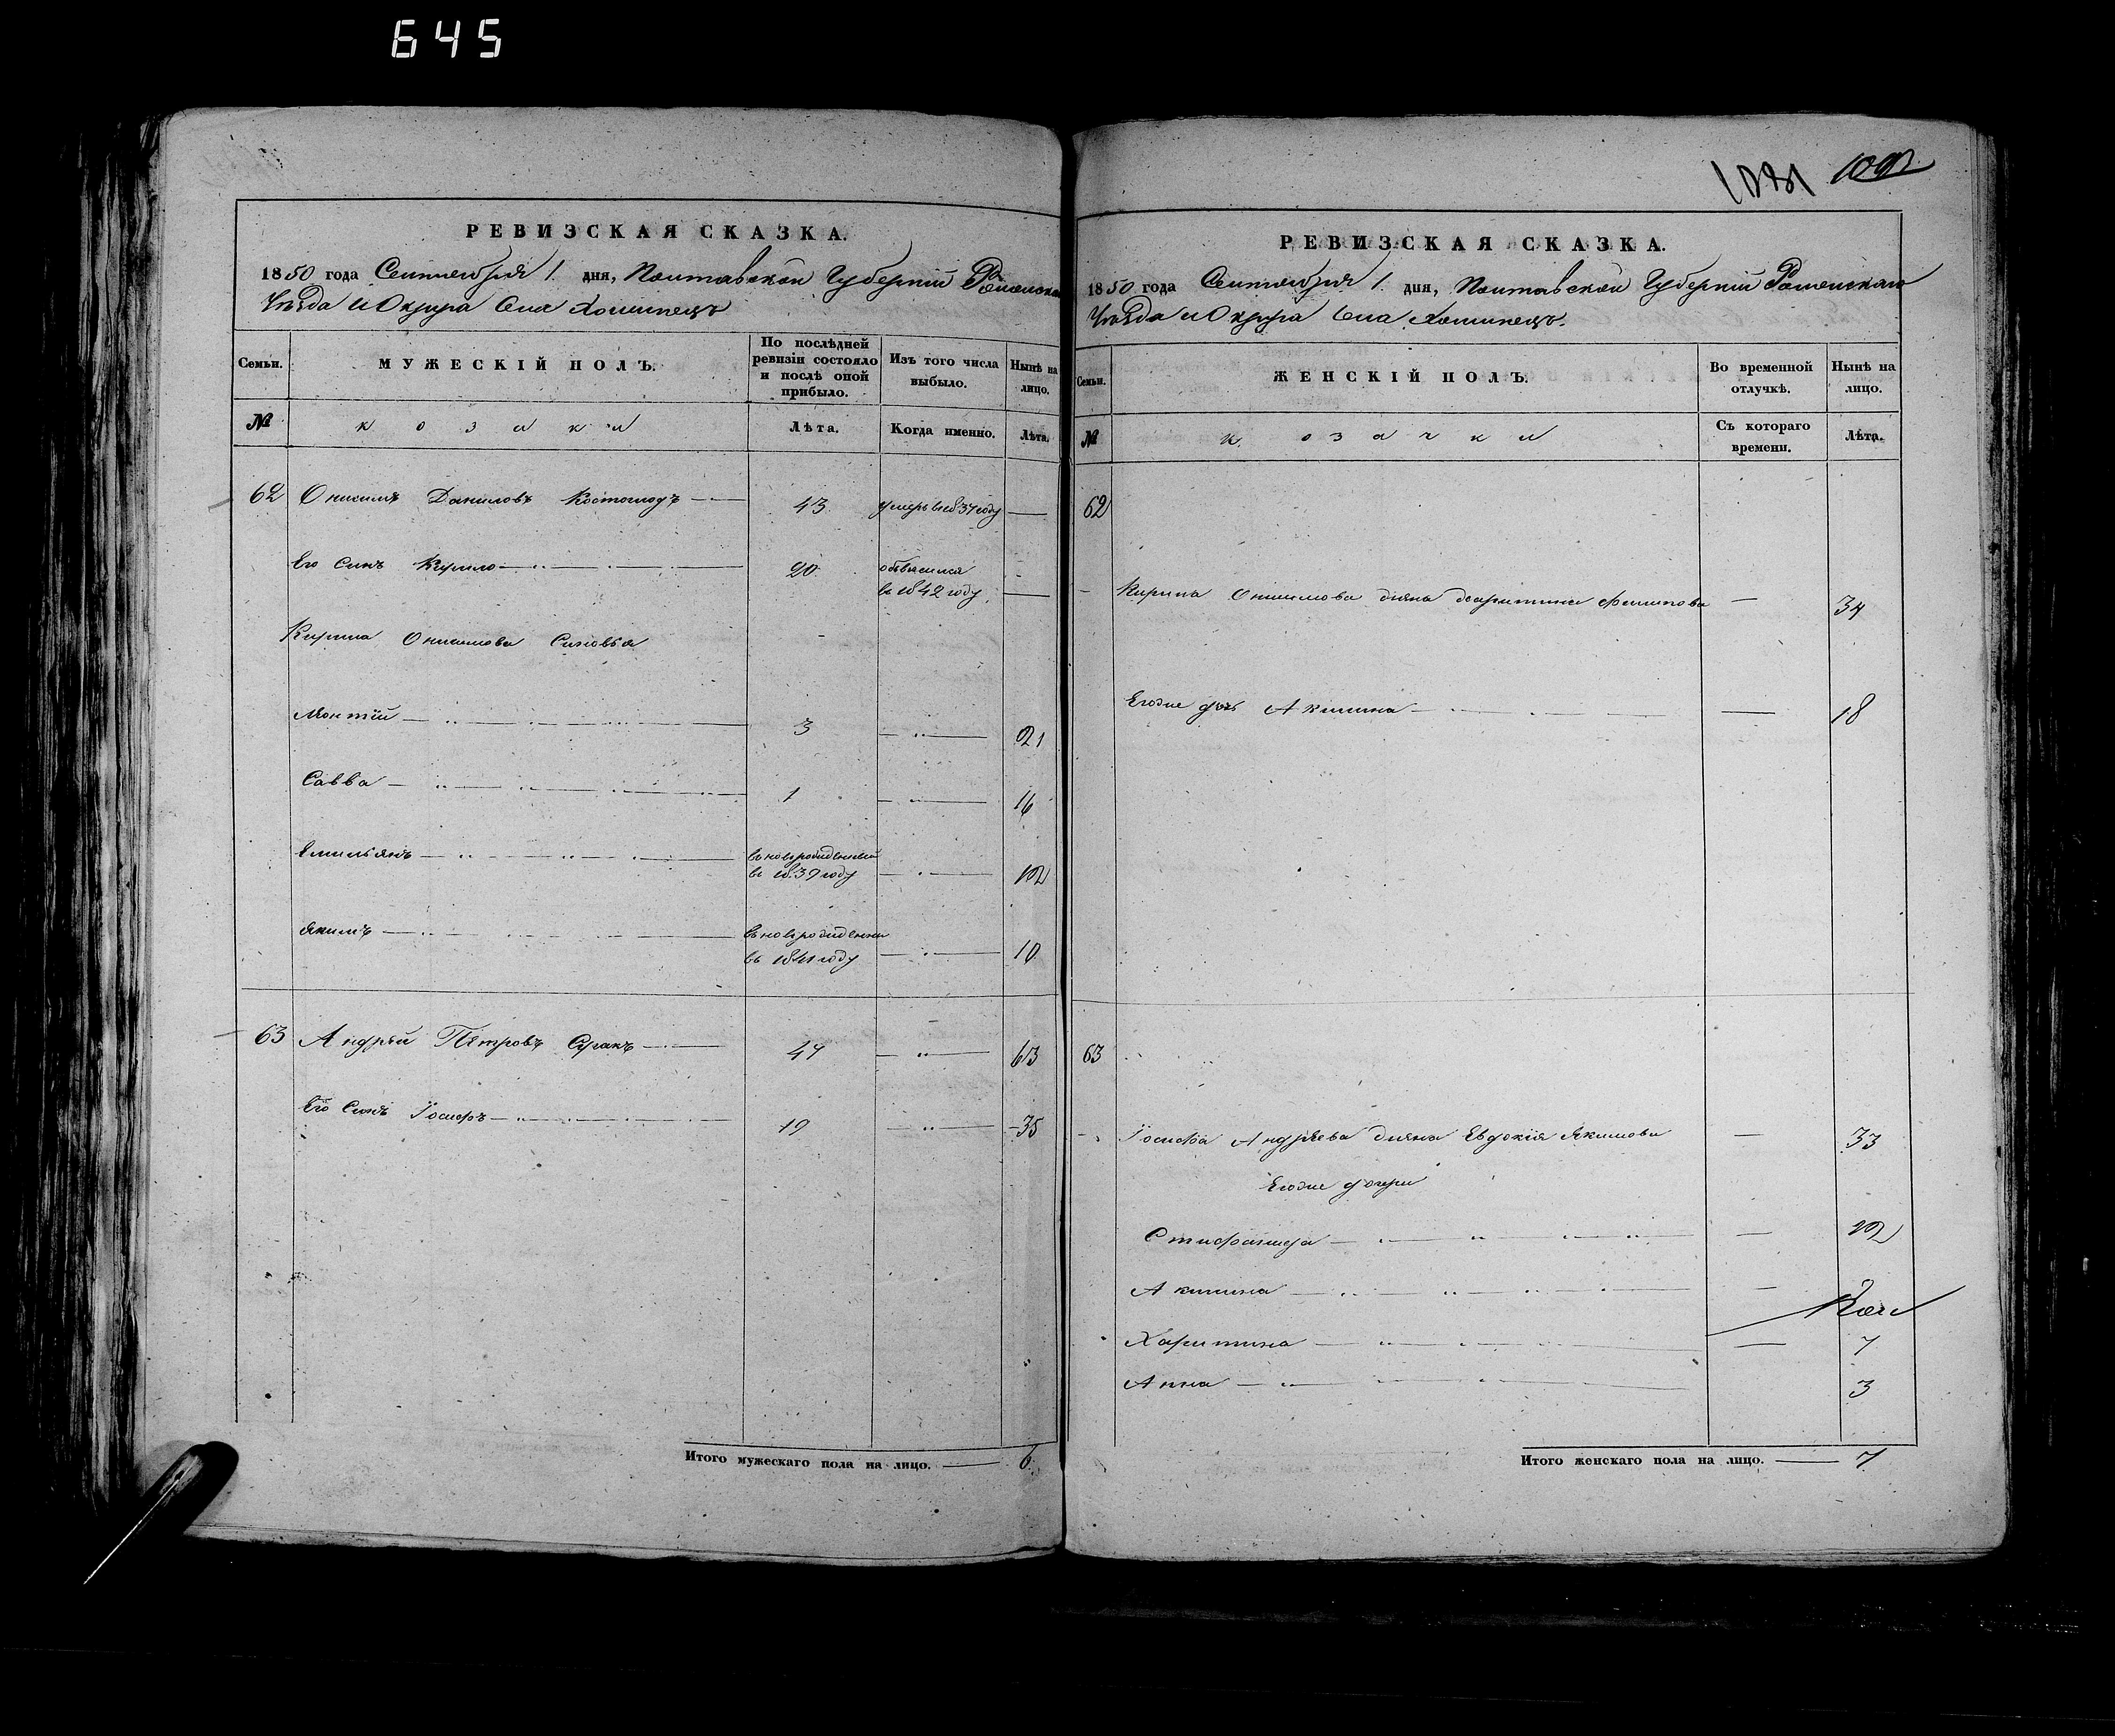 645
1092
РЕВИЗСКАЯ СКАЗКА.
1850 года Сентября 1. дня, Полтавской Губерніи Роменского
Уѣзда и Округа Села Хоминецъ
Семьи. МУЖЕСКІЙ ПОЛЪ. По послѣдней ревизіи состояло и послѣ оной прибыло. Изъ того числа выбыло. Нынѣ на лицо.
№ козаки Лѣта. Когда именно. Лѣта.
62 Онисимъ Даниловъ Костоглодъ 43 умеръ въ 1837 году
Его Синъ Кирило 20
въ 1842 году
Кирила Онисимова Синовья
Леонтій 3 21
Савва 1 16
Емильянъ вновьрожденный 12
въ 1839 году
Якимъ вновьрожденни 10
въ 1841 году
63 Андрей Петровъ 47 63
Его Синъ Іосифъ 19 35
Итого мужескаго пола на лицо. 6.
РЕВИЗСКАЯ СКАЗКА.
1850 года Сентября 1. дня, Полтавской Губерніи Роменского
Уѣзда и Округа Села Хоминецъ.
Семьи. ЖЕНСКІЙ ПОЛЪ. Во временной отлучкѣ. Нынѣ на лицо.
№ козачки Съ котораго времени. Лѣта.
62
Кирила Онисимова жена Харитина Филипова 34
Егоже дочь Акилина 18
63
Іосифа Андрѣева жена Евдокія Якимова 33
Егоже дочери
Стифанида 12
Акилина
Харитина 7
Анна 3
Итого женскаго пола на лицо. 7